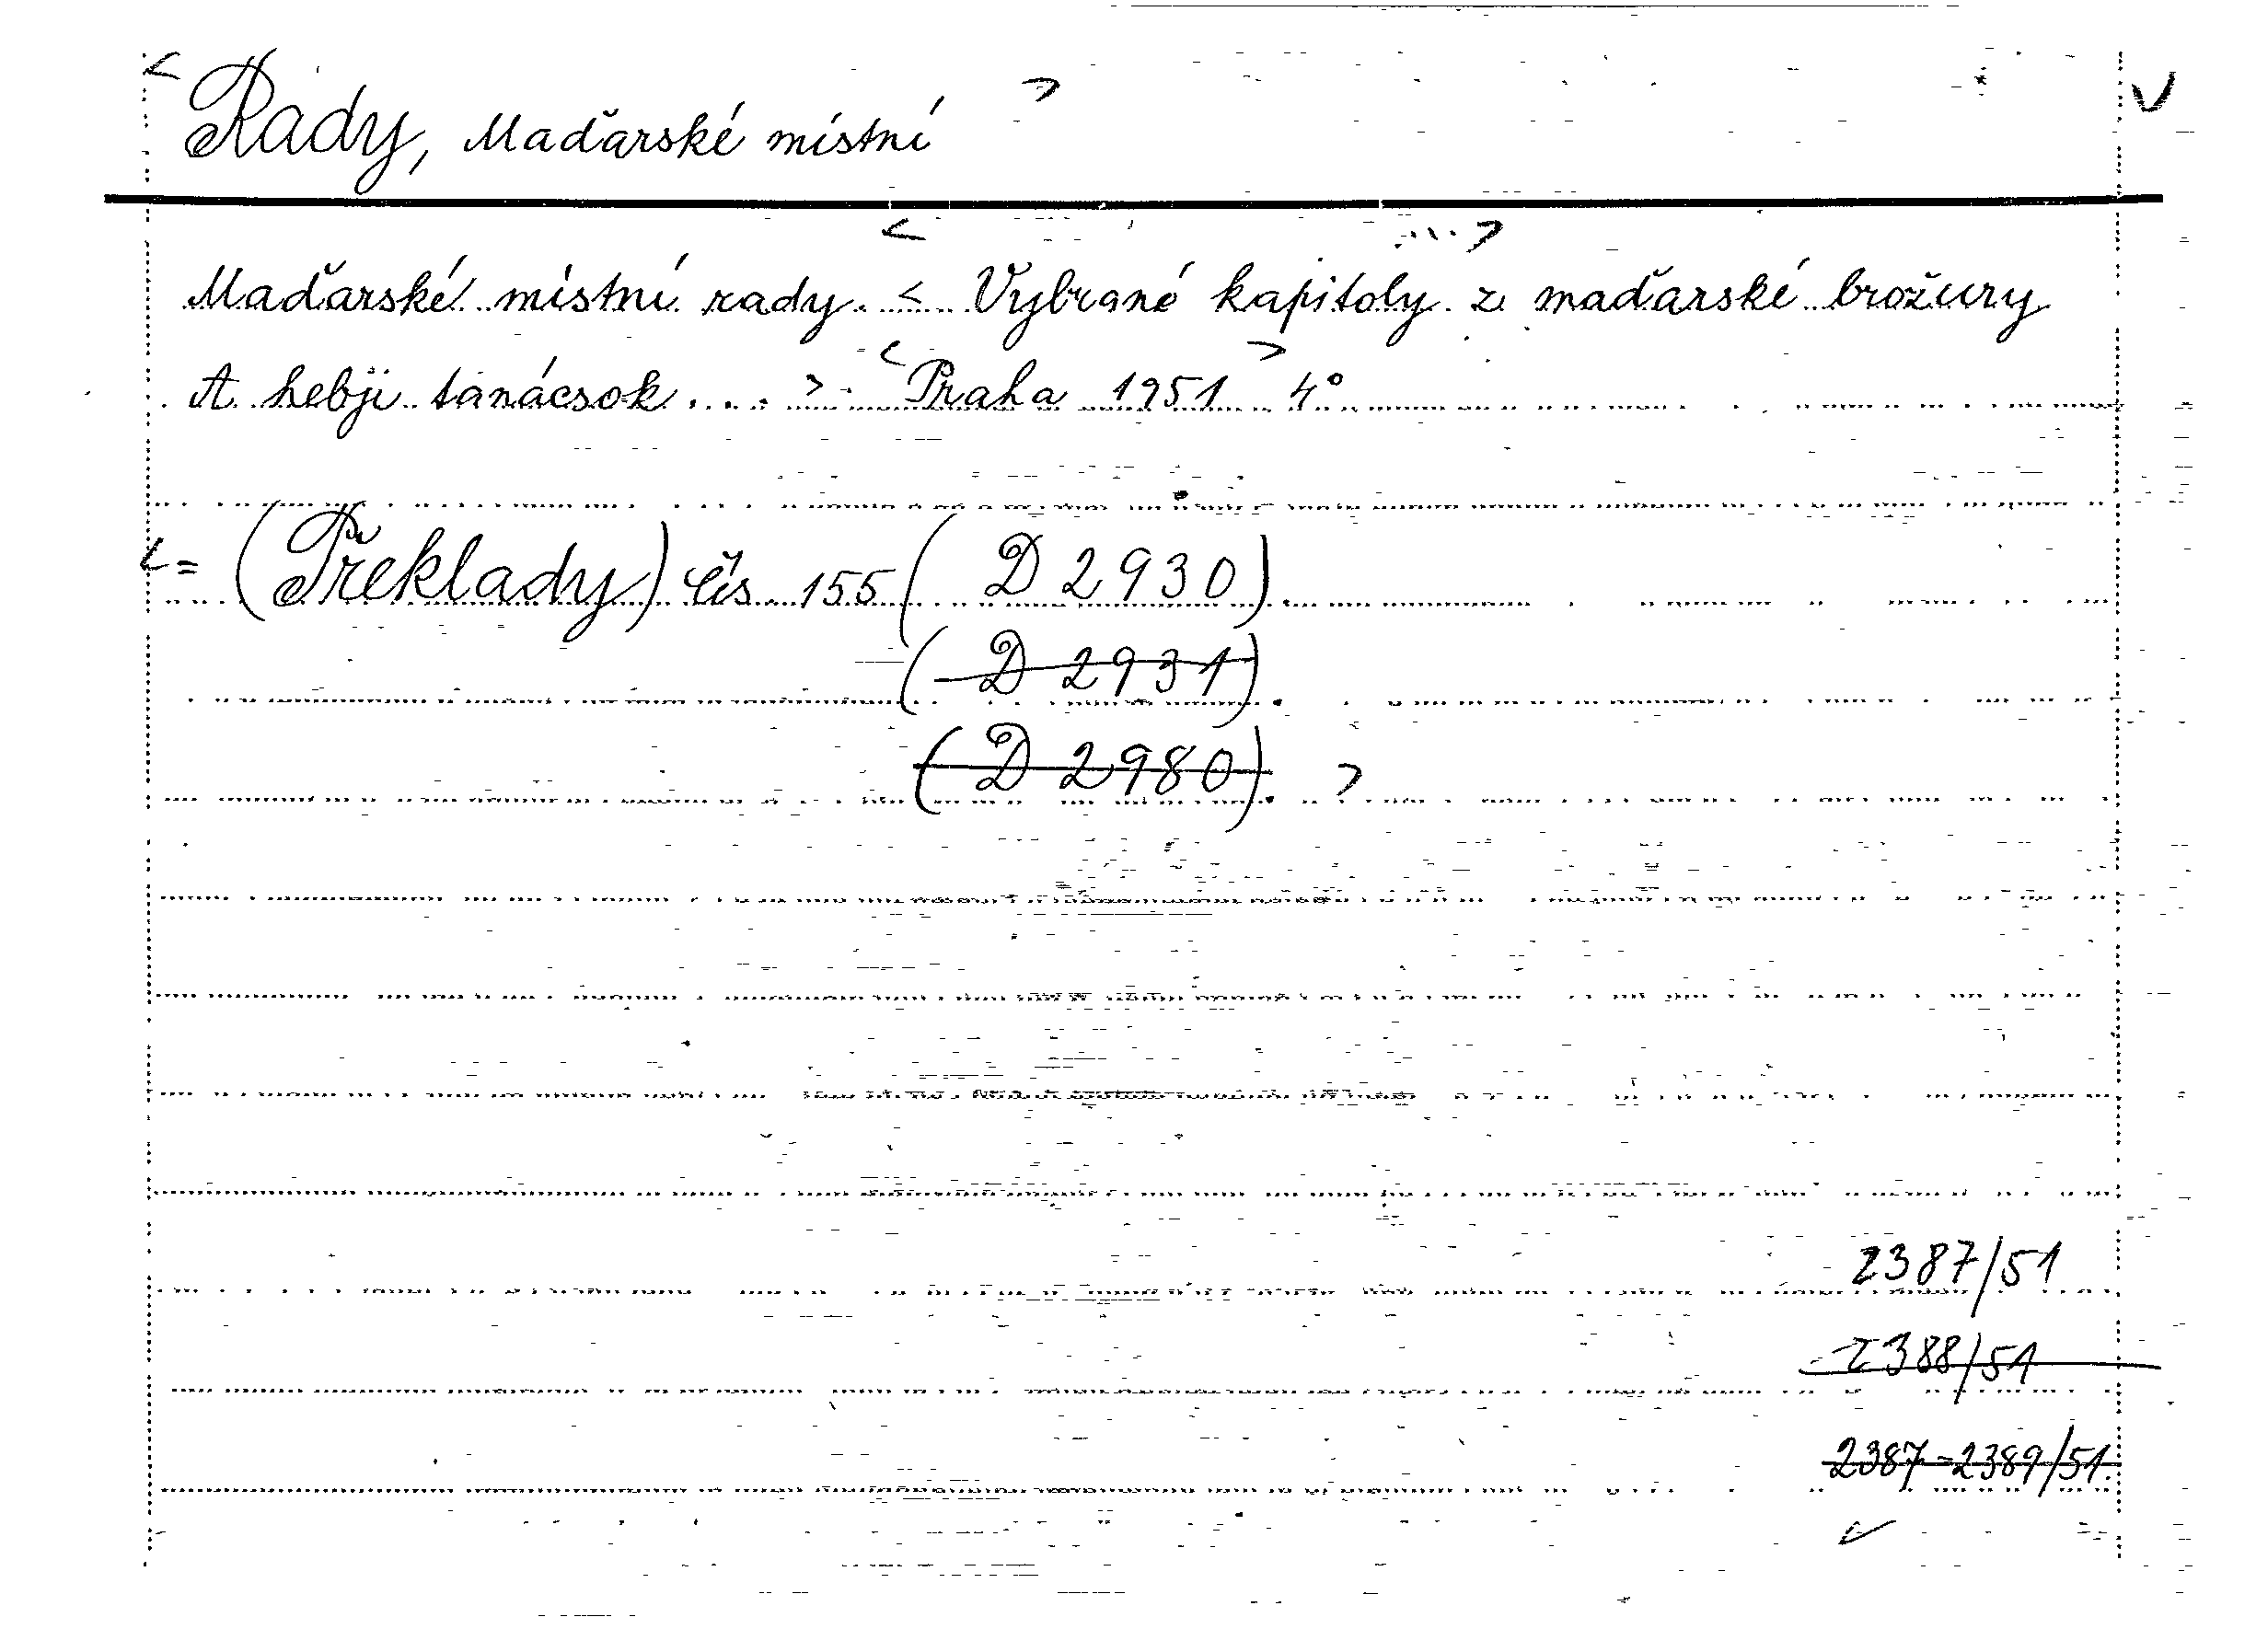 < Rady, Maďarské místní > V
< >
Maďarské místní rady. < Vybrané kapitoly z maďarské brožury
A hebji tanácsok .... > < Praha 1951 > 4°
< = (Překlady) čís. 155 (D 2930).
(D 2931).
(D 2980). >
2387/51
2388/51
2387-2389/51.